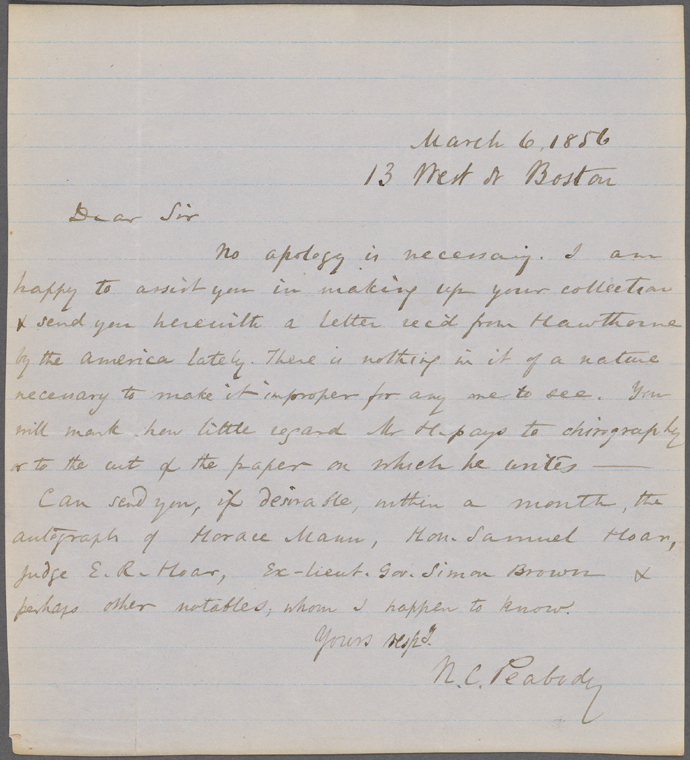 March 6, 1856
13 West St Boston
Dear Sir
No apology is necessary. I am
happy to assist you in making up your collection
& send you herewith a letter rec'd from Hawthorne
by the america lately. There is nothing in it of a nature
necessary to make it improper for any one to see. You
will mark how little regard Mr H. pays to chirography
or to the cut of the paper on which he writes —
Can send you, if desirable, within a month, the
autograph of Horace Mann, Hon. Samuel Hoar,
Judge E. R. Hoar, Ex-lieut. Gov. Simon Brown &
perhaps other notables, whom I happen to know.
Yours resp'y.
N. C. Peabody